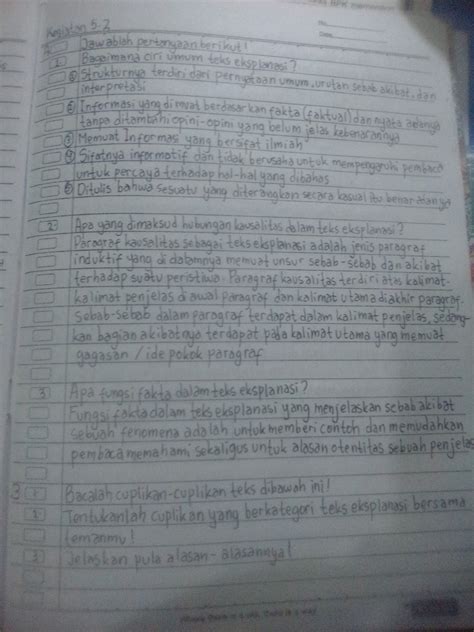 Kegiatan 5.2
No.
Date
Jawablah pertanyaan berikut!
1 Bagaimana ciri umum teks eksplanasi?
Strukturnya terdiri dari pernyataan umum, urutan sebab akibat, dan
interpretasi
Informasi yang dimuat berdasarkan fakta (faktual) dan nyata adanya
tanpa ditambahi opini-opini yang belum jelas kebenarannya
Memuat Informasi yang bersifat ilmiah
Sifatnya informatif dan tidak berusaha untuk mempengaruhi pembaca
untuk percaya terhadap hal-hal yang dibahas
Ditulis bahwa sesuatu yang diterangkan secara kasual itu benar adanya
2 Apa yang dimaksud hubungan kausalitas dalam teks eksplanasi?
Paragraf kausalitas sebagai teks eksplanasi adalah jenis paragraf
induktif yang didalamnya memuat unsur sebab-sebab dan akibat
terhadap suatu peristiwa. Paragraf kausalitas terdiri atas kalimat-
kalimat penjelas diawal paragraf dan kalimat utama diakhir paragraf.
Sebab-sebab dalam paragraf terdapat dalam kalimat penjelas, sedang-
kan bagian akibatnya terdapat pada kalimat utama yang memuat
gagasan / ide pokok paragraf
3 Apa fungsi fakta dalam teks eksplanasi?
Fungsi fakta dalam teks eksplanasi yang menjelaskan sebab akibat
sebuah fenomena adalah untuk memberi contoh dan memudahkan
pembaca memahami sekaligus untuk alasan otentitas sebuah penjelas
3 1 Bacalah cuplikan-cuplikan teks dibawah ini!
2 Tentukanlah cuplikan yang berkategori teks eksplanasi bersama
temanmu!
3 Jelaskan pula alasan-alasannya!